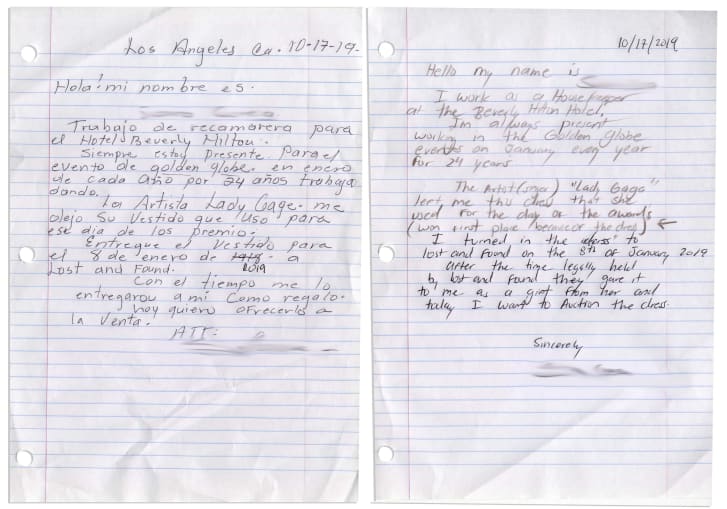 Los Angeles Ca. 10-17-19-
Hola! mi nombre es.
Trabajo de recamarera para
el Hotel Beverly Hiltou.
Siempre estoy presente para el
evento de golden globe. en enero
de cada año por 24 años trabaja
dando.
La Artista Lady Gage. me
dejo su vestido que uso para
ese dia de los premio.
Entregue el vestido para
el 8 de enero de 2019 a
Lost and Found.
Con el tiempo me lo
entregarou a mi como regalo.
hoy quiero ofrecerlo a
la venta.
ATT:
10/17/2019
Hello my name is
I work as a Housekeeper
at the Beverly Hilton Hotel.
Im always present
working in the Golden globe
events on January every year
for 24 years
The Artist (singer) "Lady Gaga"
left me this dress that she
used for the day of the awards
(won first place because of the dress) ←
I turned in the "dress" to
lost and found on the 8th of January 2019
after the time legally held
by lost and found they gave it
to me as a gift from her and
today I want to Auction the dress.
Sincerely